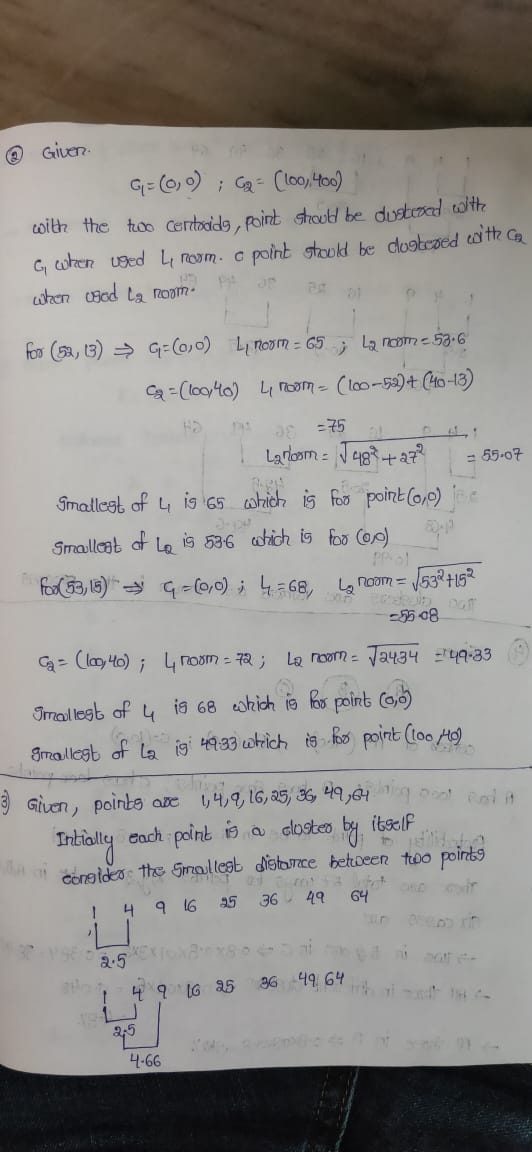 ② Given.
C₁=(0,0) ; C₂= (100,400)
with the two centroids, point should be clustered with
C₁ when used L₁ norm. c point should be clustered with C₂
when used L₂ norm.
for (52,13) ⇒ C₁=(0,0) L₁ norm = 65 ; L₂ norm = 53.6
C₂=(100,40) L₁ norm = (100-52)+(40-13)
=75
L₂ norm = √48²+27² = 55.07
Smallest of L₁ is 65 which is for point(0,0)
Smallest of L₂ is 53.6 which is for (0,0)
for(53,15) ⇒ C₁=(0,0) ; L₁=68, L₂ norm = √53²+15²
=55.08
C₂= (100,40) ; L₁ norm = 72 ; L₂ norm = √2434 = 49.33
Smallest of L₁ is 68 which is for point (0,0)
Smallest of L₂ is 49.33 which is for point (100,40)
3) Given, points are 1,4,9,16,25,36,49,64
Intially each point is a cluster by itself
consider the smallest distance between two points
1 4 9 16 25 36 49 64
2.5
1 4 9 16 25 36 49 64
2.5
4.66